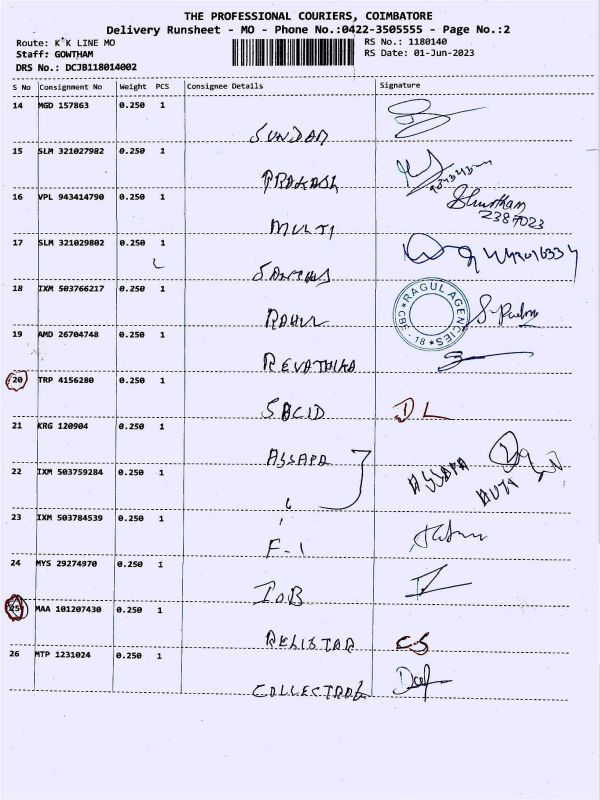 THE PROFESSIONAL COURIERS, COIMBATORE
Delivery Runsheet - MO - Phone No.:0422-3505555 - Page No.:2
Route: K*K LINE MO
RS No.: 1180140
Staff: GOWTHAM
RS Date: 01-Jun-2023
DRS No.: DCJB118014002
S No Consignment No Weight PCS Consignee Details Signature
14 MGD 157863 0.250 1
SUNDAR
15 SLM 321027982 0.250 1
PRAKASH
16 VPL 943414790 0.250 1
MULTI
17 SLM 321029802 0.250 1
SANTHUS
18 IXM 503766217 0.250 1
RAHUL
RAGUL AGENCIES
CBE - 18
19 AMD 26704748 0.250 1
REVATHIKA
20 TRP 4156280 0.250 1
SBCID DL
21 KRG 120904 0.250 1
ASSAPA ASSAPA
22 IXM 503759284 0.250 1
23 IXM 503784539 0.250 1
F-1
24 MYS 29274970 0.250 1
IOB
25 MAA 101207430 0.250 1
RELISTAR CS
26 MTP 1231024 0.250 1